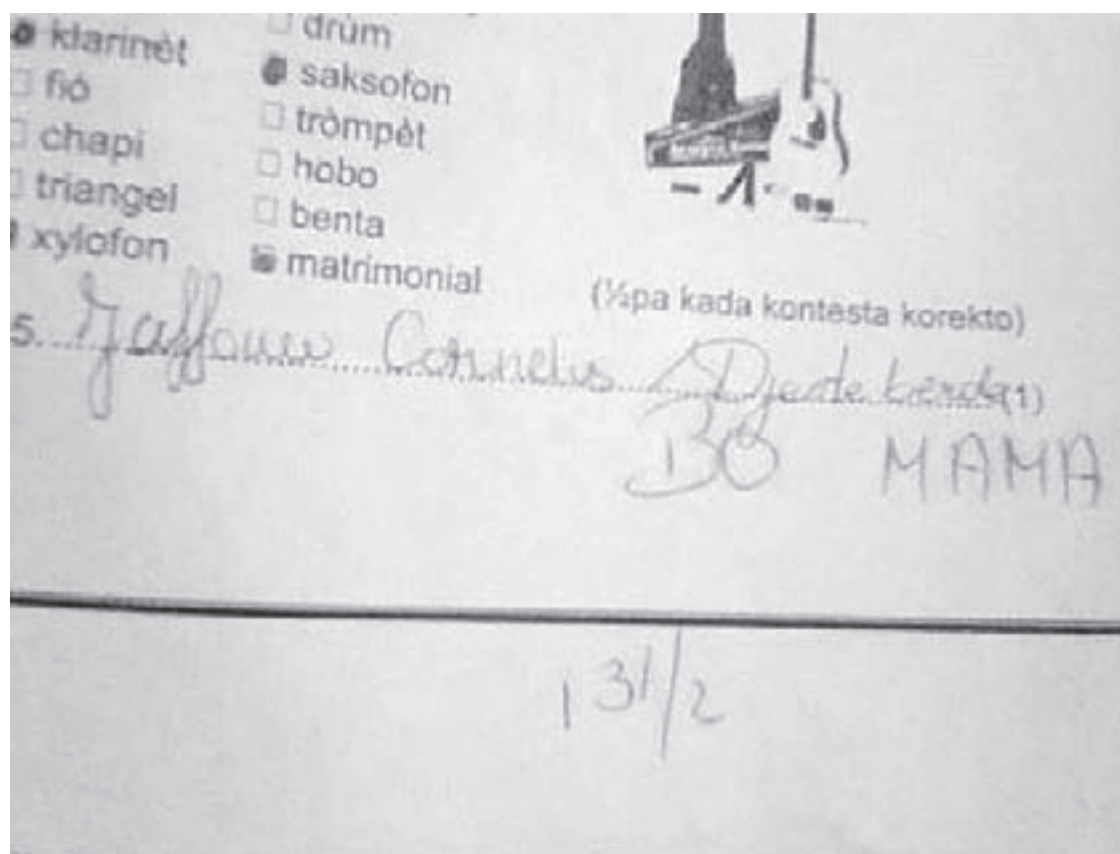 klarinèt
fiò
chapi
triangel
xylofon
drùm
saksofon
tròmpèt
hobo
benta
matrimonial
(½pa kada kontesta korekto)
5. Cornelis / Djente berde (1)
BO MAMA
1 3 1/2